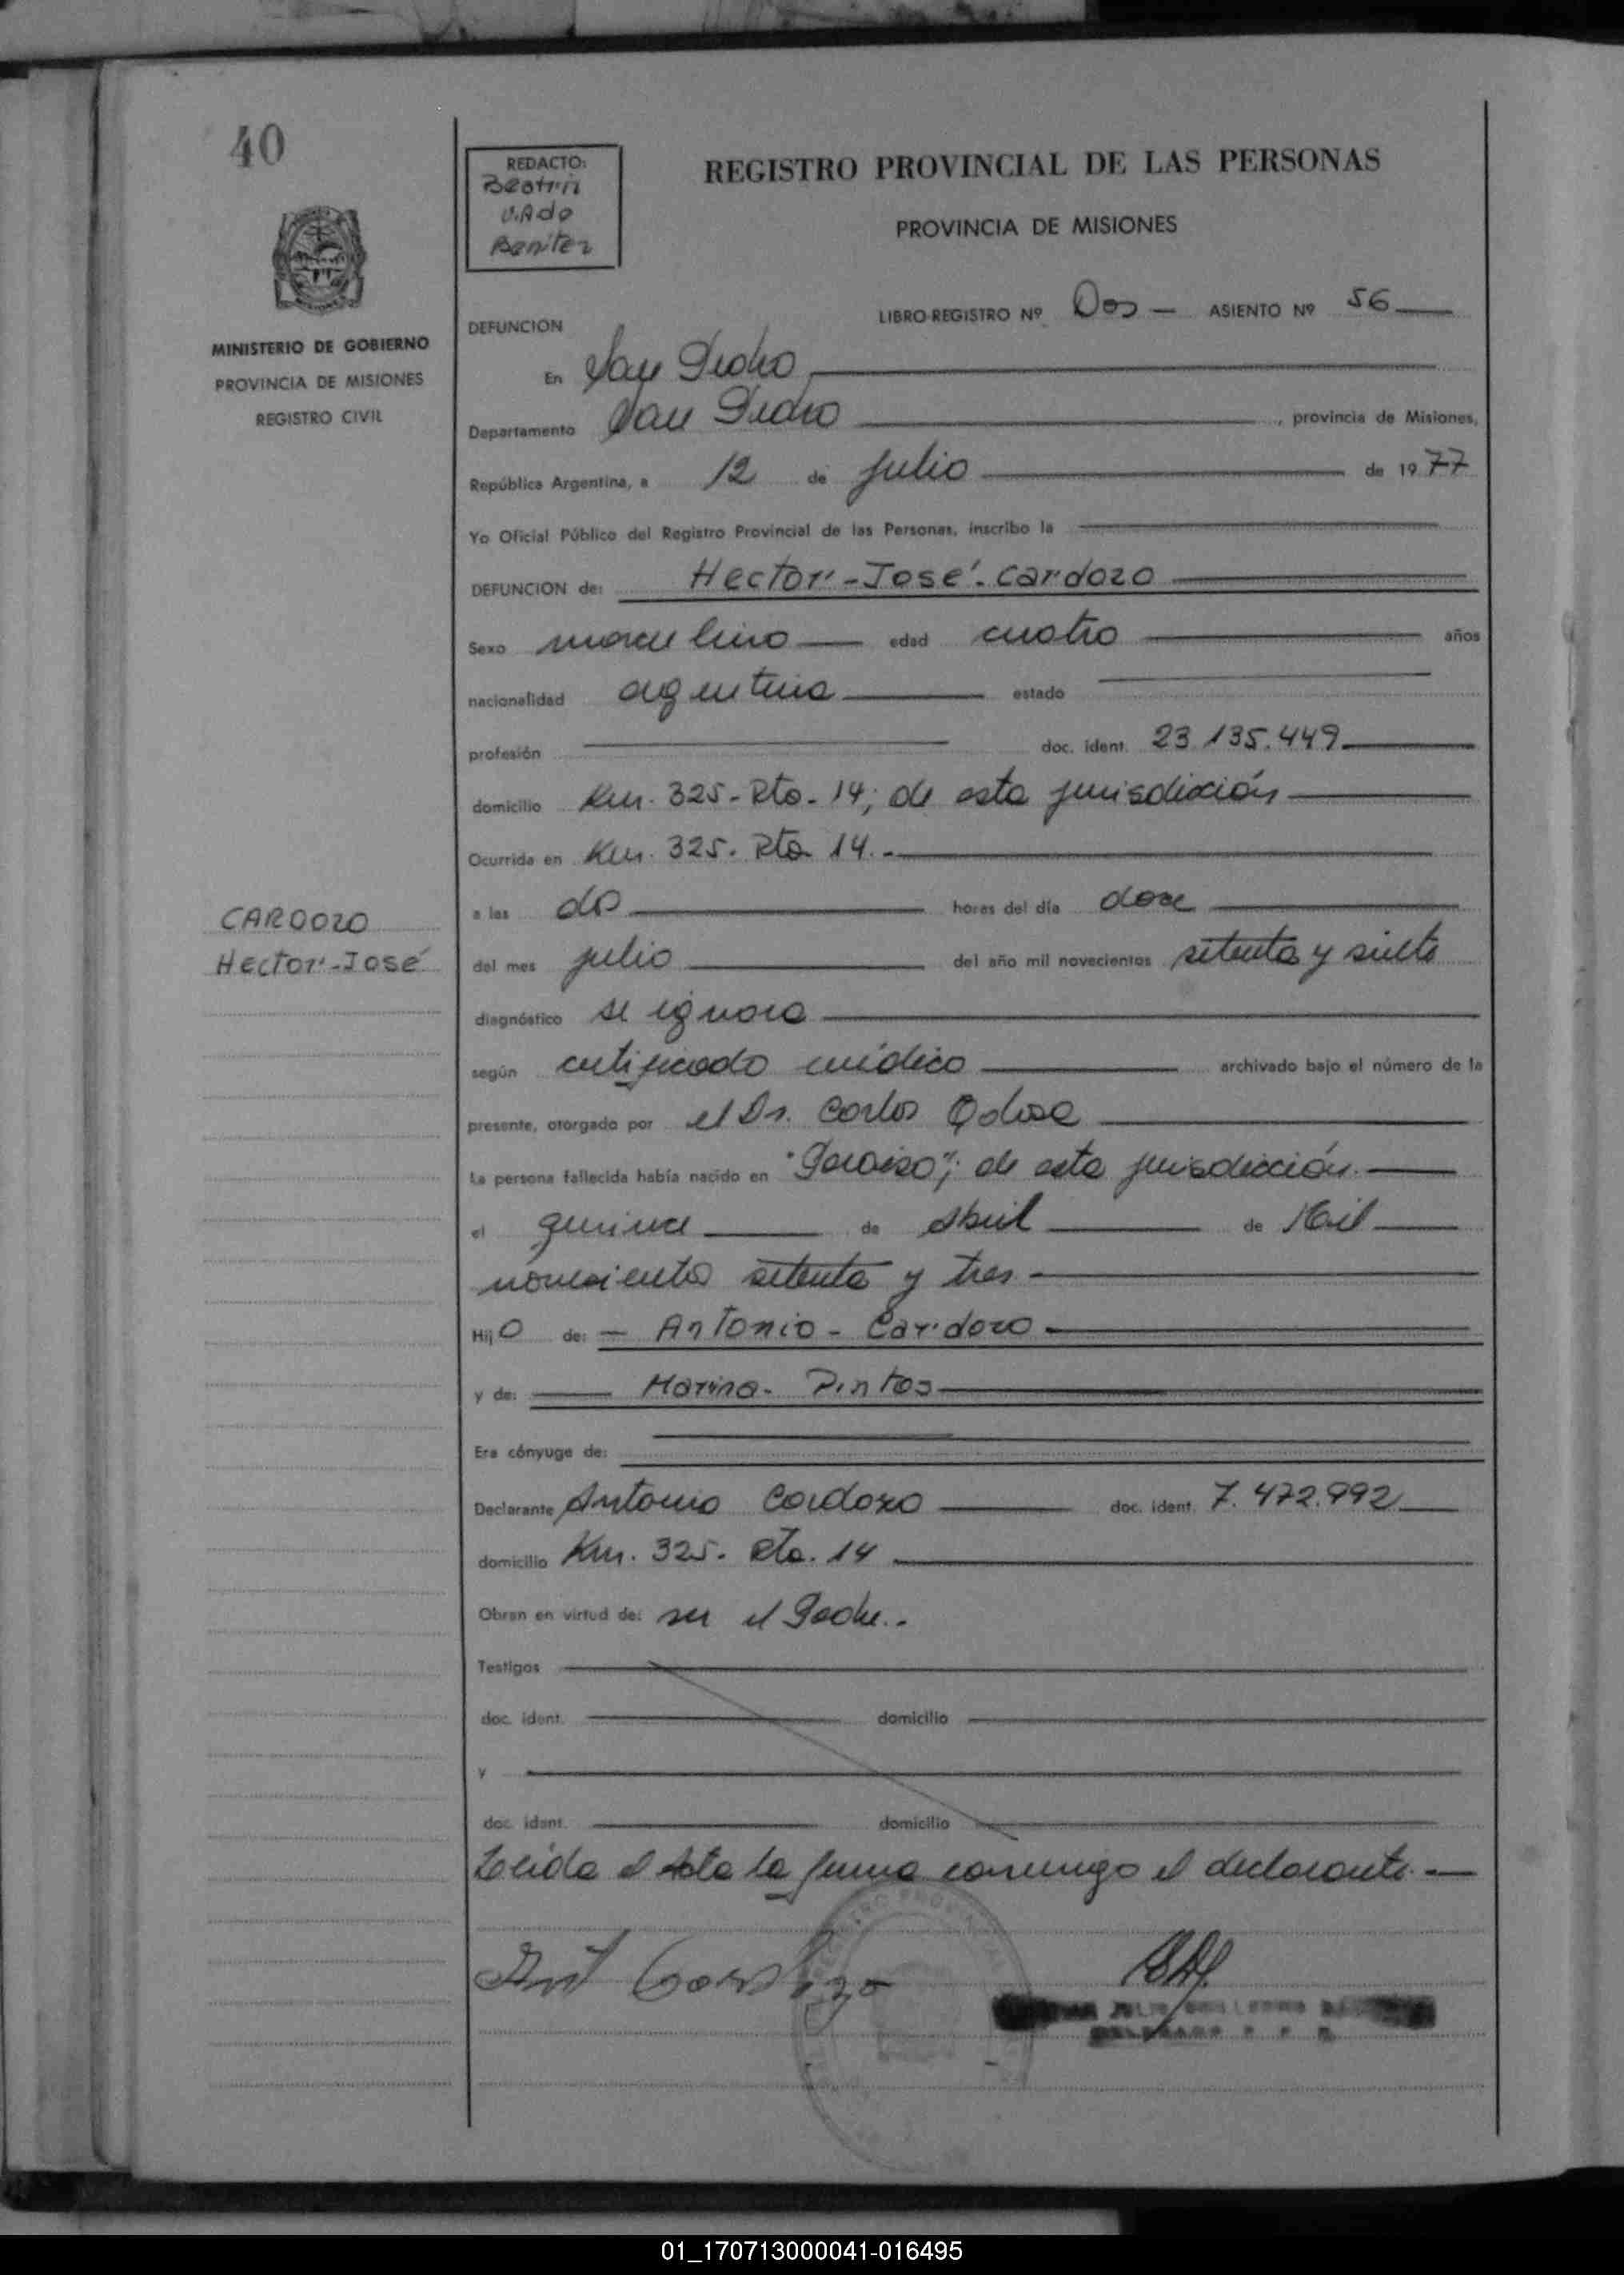 40
REDACTO:
Beatriz
V.Ado
Benitez
REGISTRO PROVINCIAL DE LAS PERSONAS
PROVINCIA DE MISIONES
MINISTERIO DE GOBIERNO
PROVINCIA DE MISIONES
REGISTRO CIVIL
LIBRO-REGISTRO Nº Dos — ASIENTO Nº 56
DEFUNCION
En San Pedro
Departamento San Pedro, provincia de Misiones,
República Argentina, a 12 de Julio de 1977
Yo Oficial Público del Registro Provincial de las Personas, inscribo la
DEFUNCION de: Hector-José-Cardozo
Sexo masculino edad cuatro años
nacionalidad argentina estado
profesión doc. ident. 23.135.449
domicilio Km. 325-Rta-14; de esta jurisdicción
Ocurrida en Km. 325. Rta 14.-
a las dos horas del día doce
CARDOZO
Hector-José
del mes julio del año mil novecientos setenta y siete
diagnóstico se ignora
según certificado médico archivado bajo el número de la
presente, otorgado por el Dr. Carlos
La persona fallecida había nacido en "Paraiso"; de esta jurisdicción.
el quince de Abril de Mil
novecientos setenta y tres.-
Hijo de: - Antonio - Cardozo
y de: Marina - Pintos
Era cónyuge de:
Declarante Antonio Cardozo doc. ident. 7.472.992
domicilio Km. 325. Rta. 14
Obran en virtud de: ser el Padre.-
Testigos
doc. ident. domicilio
y
doc. ident. domicilio
Leida el Acta la firma conmigo el declarante.-
Ant Cardozo
01_170713000041-016495